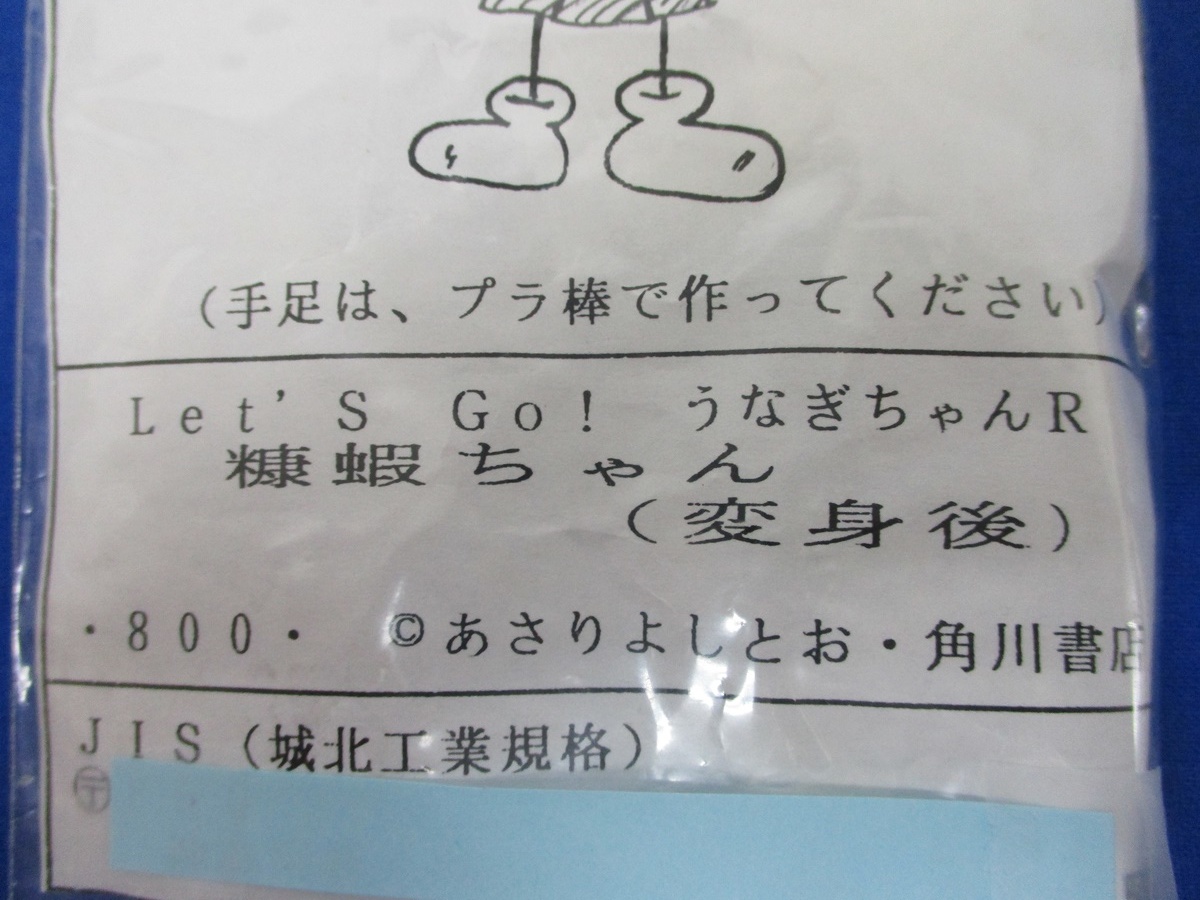 (手足は、プラ棒で作ってください)
Let'S Go! うなぎちゃんR
糠蝦ちゃん
(変身後)
・800・ ©あさりよしとお・角川書店
JIS(城北工業規格)
〶